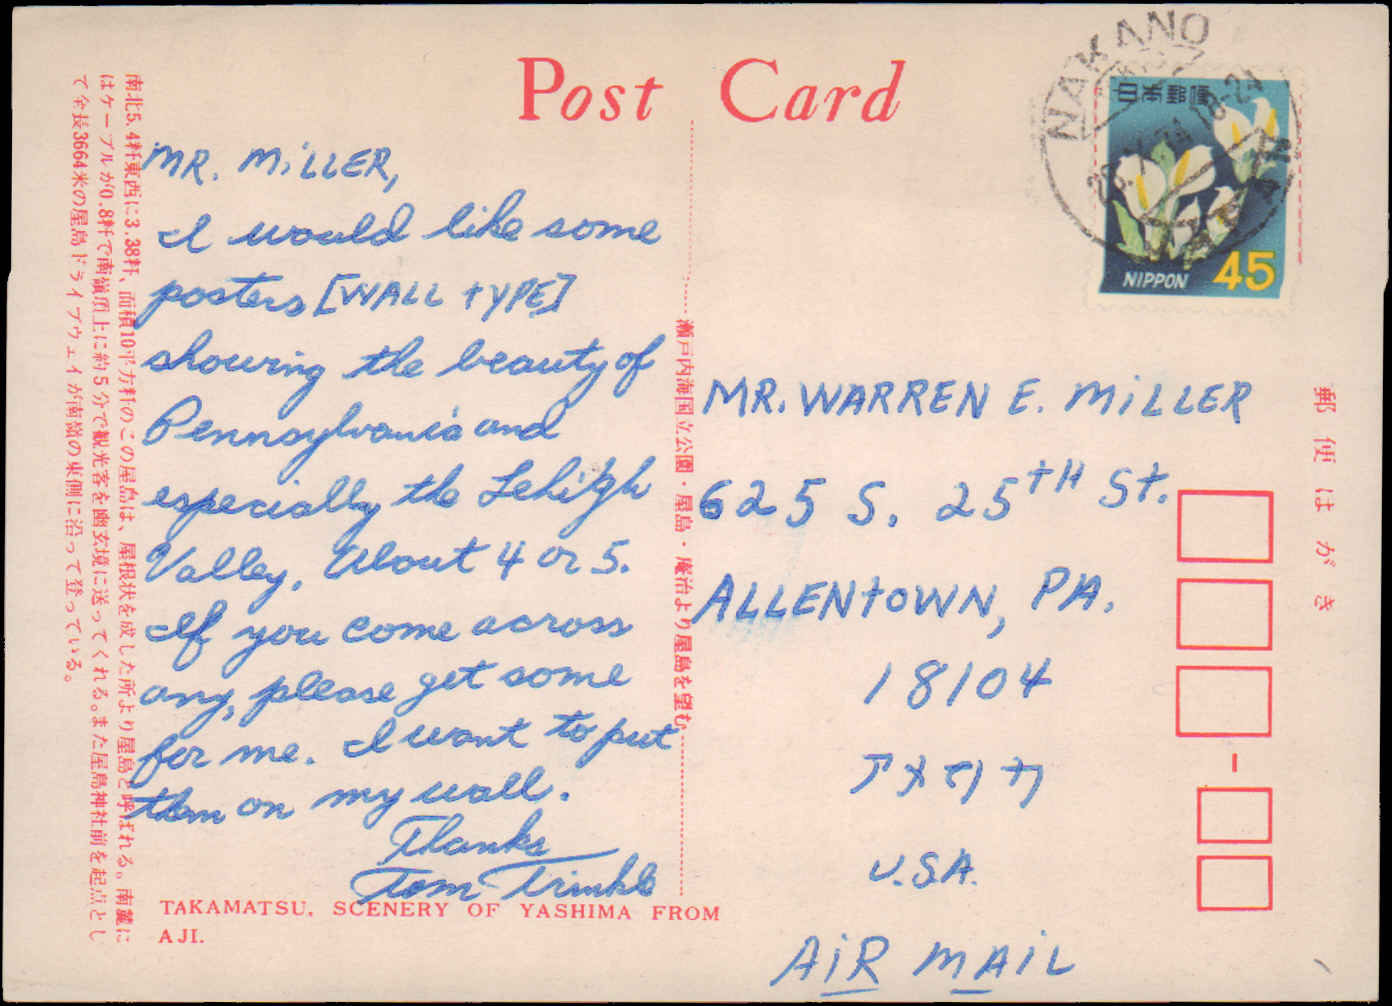 Post Card
MR. MiLLER,
I would like some
posters [WALL TYPE]
showing the beauty of
Pennsylvania and
especially the Lehigh
Valley. About 4 or 5.
If you come across
any, please get some
for me. I want to put
them on my wall.
Thanks
Tom Trinkle
TAKAMATSU. SCENERY OF YASHIMA FROM
AJI.
南北5.4粁東西に3.38粁、面積10平方粁のこの屋島は、屋根状を成した所より屋島と呼ばれる。南麓に
はケーブルが0.8粁で南嶺頂上に約5分で観光客を幽玄境に送ってくれる。また屋島神社前を起点とし
て全長3664米の屋島ドライブウェイが南嶺の東側に沿って登っている。
瀬戸内海国立公園・屋島・庵治より屋島を望む
NAKANO
JAPAN
日本郵便
NIPPON 45
MR. WARREN E. MiLLER
625 S. 25TH St.
ALLENTOWN, PA.
18104
アメリカ
U.S.A.
AiR MAiL
郵便はがき